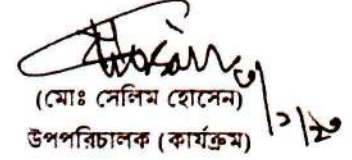 (মোঃ সেলিম হোসেন)
উপপরিচালক (কার্যক্রম)